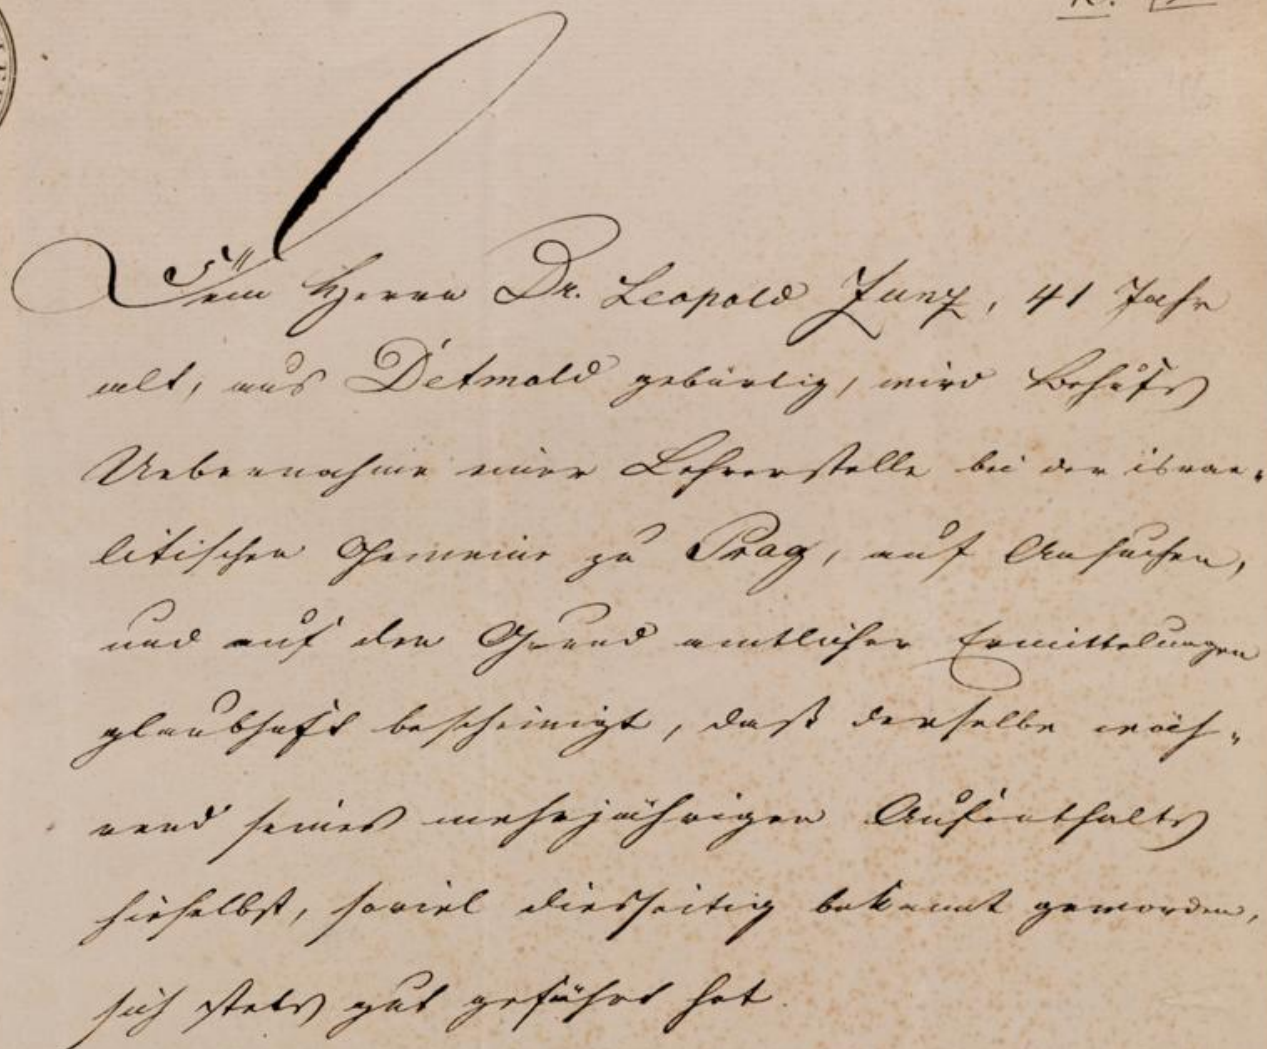 Dem Herrn Dr. Leopold Zunz, 41 Jahr
alt, aus Detmold gebürtig, wird Behufs
Uebernahme einer Lehrerstelle bei der israe-
litischen Gemeine zu Prag, auf Ansuchen,
und auf den Grund amtlicher Ermittelungen
glaubhaft bescheinigt, daß derselbe wäh-
rend seines mehrjährigen Aufenthalts
hieselbst, soviel diesseitig bekannt geworden,
sich stets gut geführt hat.